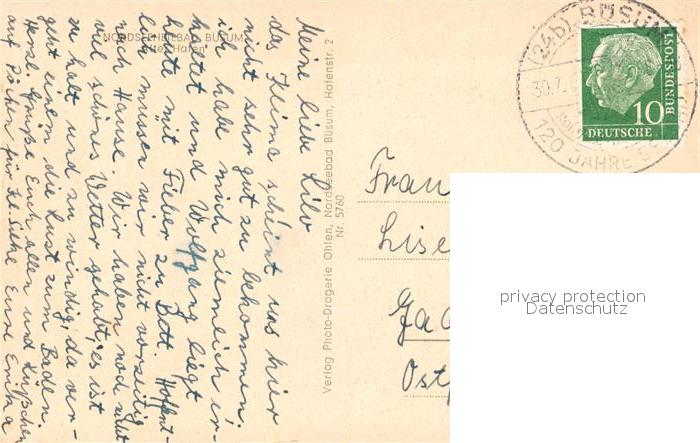 NORDSEEHEILBAD BÜSUM
Alter Hafen
Meine liebe Lilo
das Klima scheint uns hier
nicht sehr gut zu bekommen.
ich habe mich ziemlich er-
kältet und Wolfgang liegt
heute mit Fieber zu Bett. Hoffent-
lich müssen wir nicht vorzeitig
nach Hause. Wir haben noch nicht
viel schönes Wetter gehabt, es ist
zu kalt und zu windig, da ver-
geht einem die Lust zum Baden.
Herzl. Grüße Euch allen und Küßchen
auf Zehen für Eure Erika
Verlag Photo-Drogerie Ohlen, Nordseebad Büsum, Hafenstr. 2
Nr. 5760
(24b) BÜSUM
30.7.
120 JAHRE
10
DEUTSCHE
BUNDESPOST
Frau
Lise
Ost
privacy protection
Datenschutz